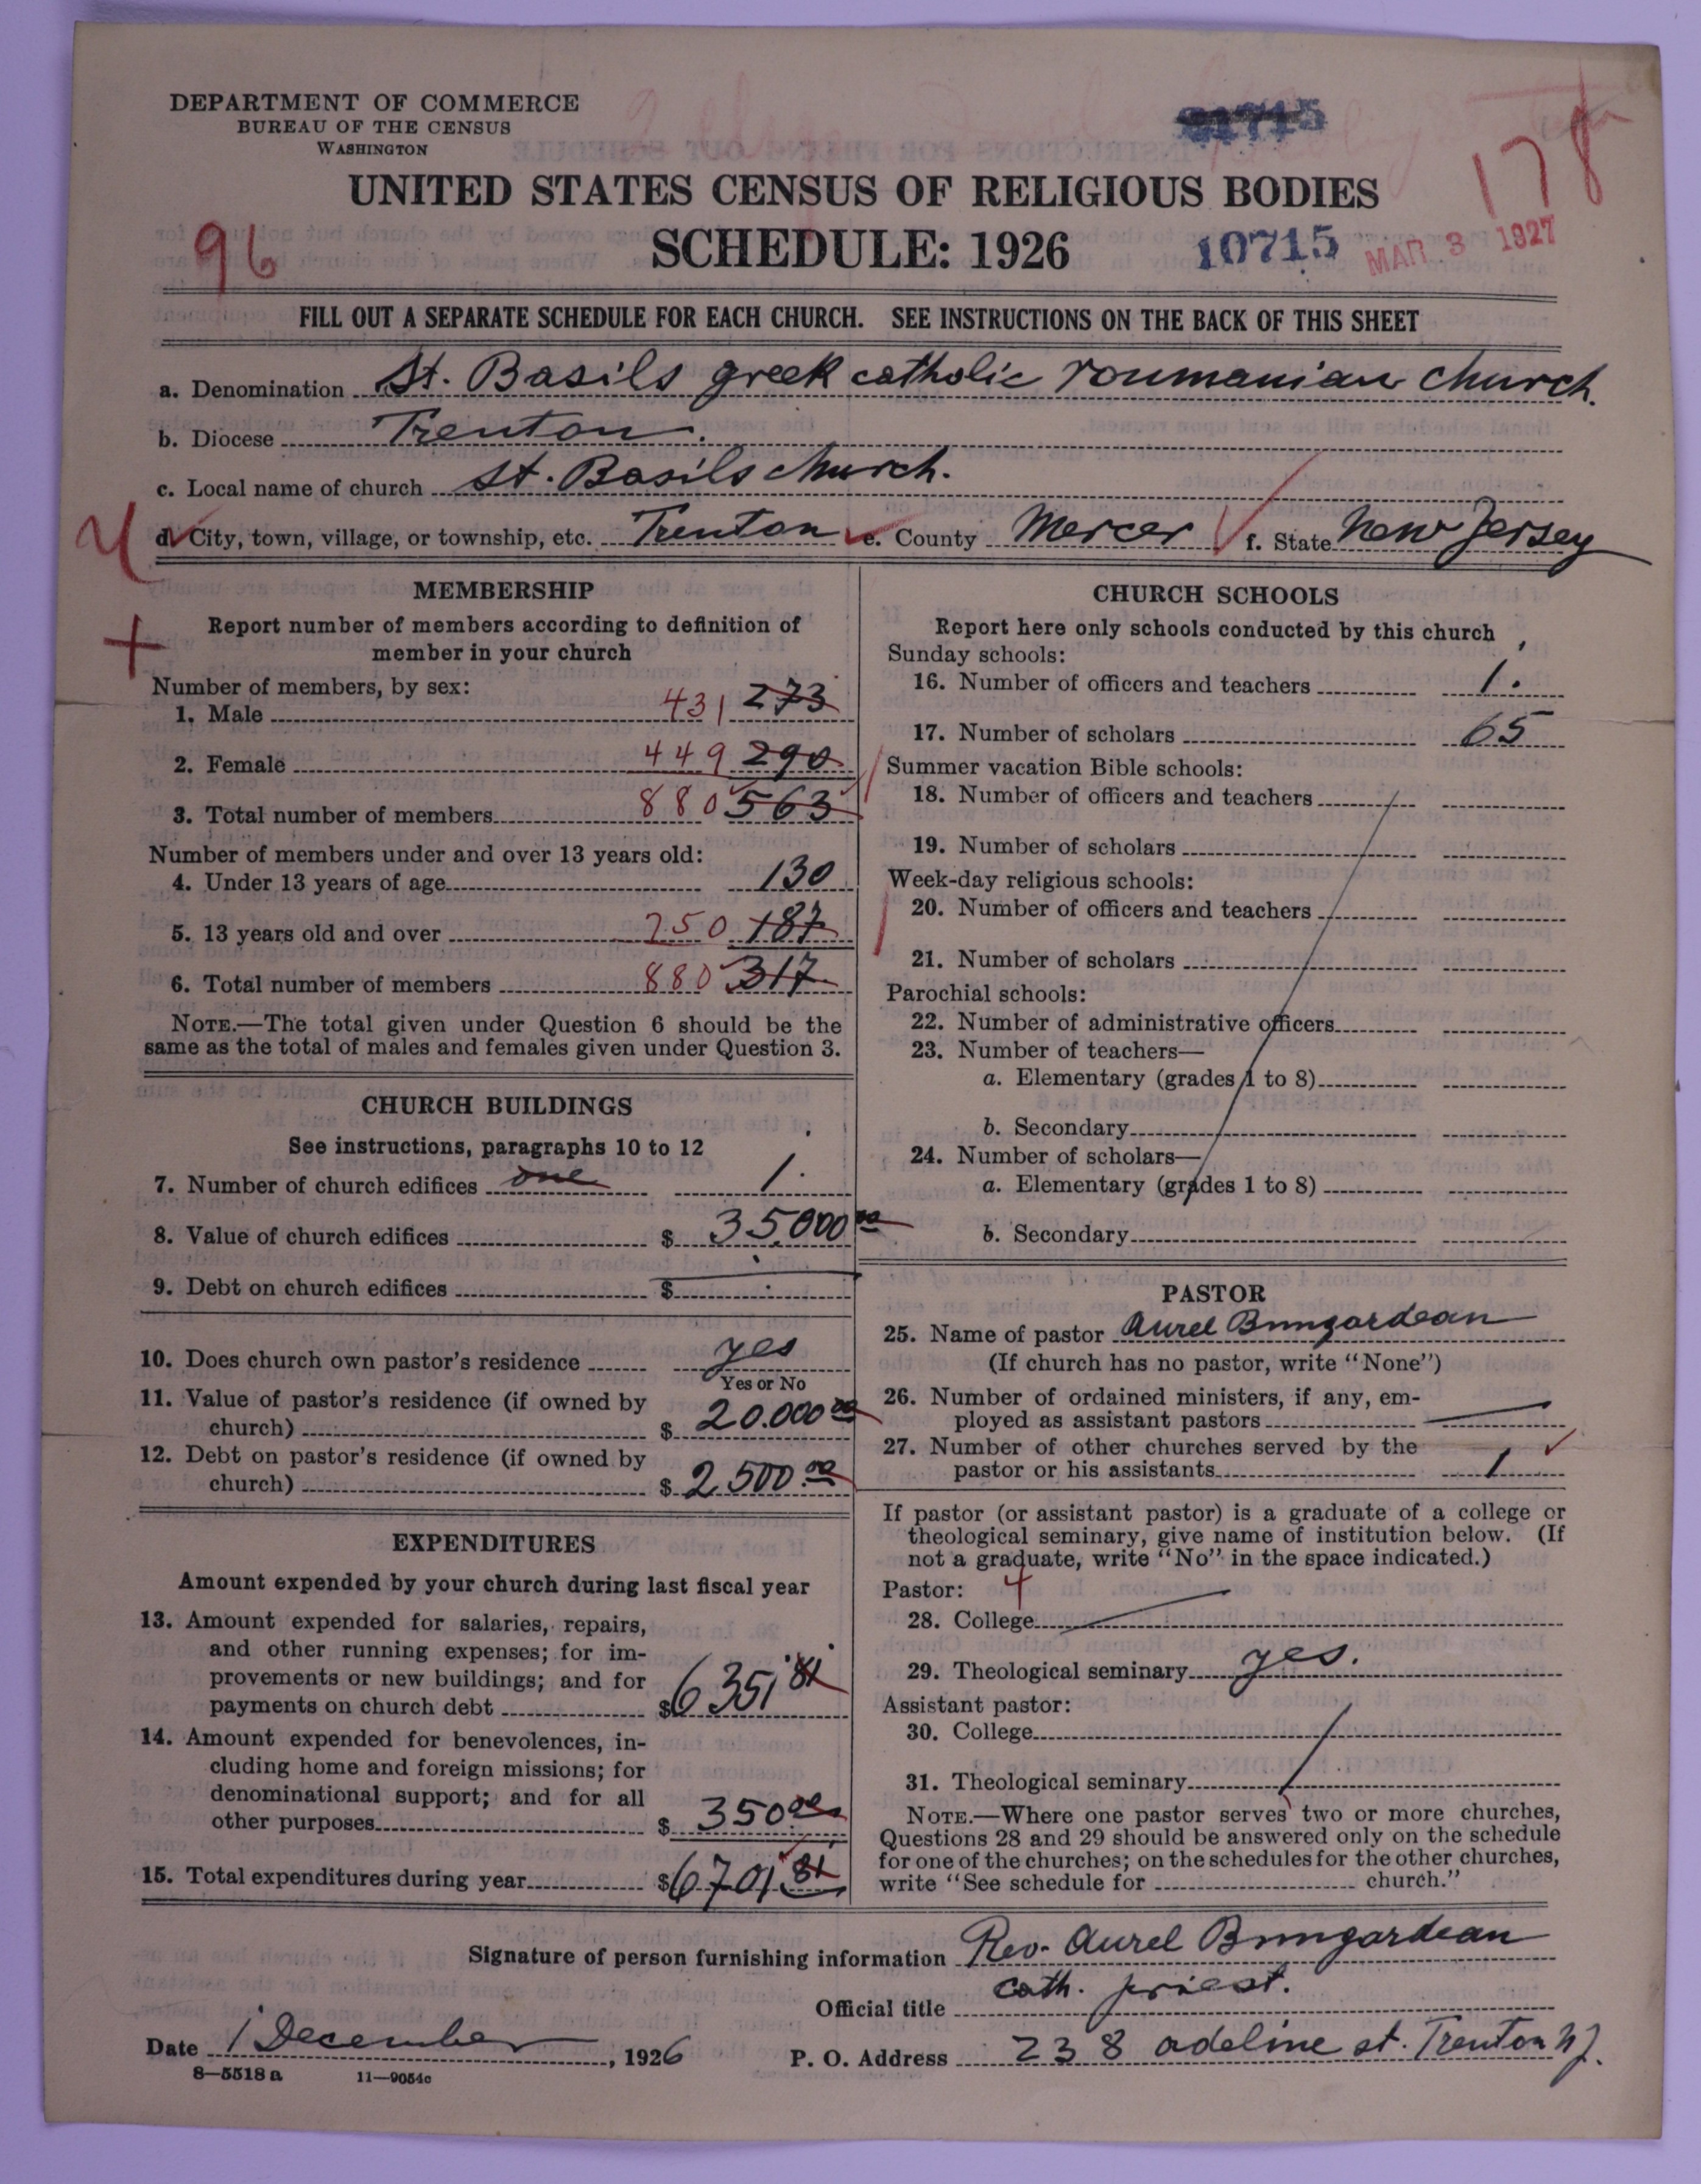 DEPARTMENT OF COMMERCE
BUREAU OF THE CENSUS
WASHINGTON
178
UNITED STATES CENSUS OF RELIGIOUS BODIES
96
SCHEDULE: 1926
10715
MAR 3 1927
FILL OUT A SEPARATE SCHEDULE FOR EACH CHURCH. SEE INSTRUCTIONS ON THE BACK OF THIS SHEET
a. Denomination St. Basils greek catholic roumanian church.
b. Diocese Trenton.
c. Local name of church St. Basils church.
d. City, town, village, or township, etc. Trenton e. County Mercer f. State New Jersey
MEMBERSHIP
Report number of members according to definition of
member in your church
Number of members, by sex:
1. Male 431 273
2. Female 449 290
3. Total number of members 880 563
Number of members under and over 13 years old:
4. Under 13 years of age 130
5. 13 years old and over 750 187
6. Total number of members 880 317
NOTE.—The total given under Question 6 should be the
same as the total of males and females given under Question 3.
CHURCH BUILDINGS
See instructions, paragraphs 10 to 12
7. Number of church edifices one 1.
8. Value of church edifices $ 35,000 00
9. Debt on church edifices $
10. Does church own pastor's residence yes
Yes or No
11. Value of pastor's residence (if owned by
church) $ 20.000 00
12. Debt on pastor's residence (if owned by
church) $ 2.500 00
EXPENDITURES
Amount expended by your church during last fiscal year
13. Amount expended for salaries, repairs,
and other running expenses; for im-
provements or new buildings; and for
payments on church debt $ 6351 81
14. Amount expended for benevolences, in-
cluding home and foreign missions; for
denominational support; and for all
other purposes $ 350 00
15. Total expenditures during year $ 6701 81
CHURCH SCHOOLS
Report here only schools conducted by this church
Sunday schools:
16. Number of officers and teachers 1.
17. Number of scholars 65
Summer vacation Bible schools:
18. Number of officers and teachers
19. Number of scholars
Week-day religious schools:
20. Number of officers and teachers
21. Number of scholars
Parochial schools:
22. Number of administrative officers
23. Number of teachers—
a. Elementary (grades 1 to 8)
b. Secondary
24. Number of scholars—
a. Elementary (grades 1 to 8)
b. Secondary
PASTOR
25. Name of pastor Aurel Bungardean
(If church has no pastor, write "None")
26. Number of ordained ministers, if any, em-
ployed as assistant pastors
27. Number of other churches served by the
pastor or his assistants 1
If pastor (or assistant pastor) is a graduate of a college or
theological seminary, give name of institution below. (If
not a graduate, write "No" in the space indicated.)
Pastor: 4
28. College
29. Theological seminary yes.
Assistant pastor:
30. College
31. Theological seminary
NOTE.—Where one pastor serves two or more churches,
Questions 28 and 29 should be answered only on the schedule
for one of the churches; on the schedules for the other churches,
write "See schedule for church."
Signature of person furnishing information Rev. Aurel Bungardean
Official title cath. priest.
Date 1 December, 1926 P. O. Address 238 adeline st. Trenton NJ.
8—5518 a 11—9054c